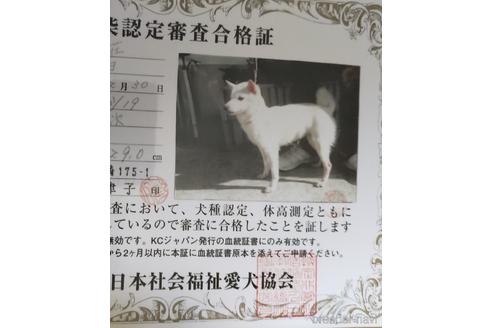 柴認定審査合格証
月30日
/19
29.0 cm
175-1
津子 印
査において、犬種認定、体高測定ともに
ているので審査に合格したことを証します
無効です。KCジャパン発行の血統証書にのみ有効です。
から2ヶ月以内に本証に血統証書原本を添えてご申請ください。
日本社会福祉愛犬協会
breeder-navi